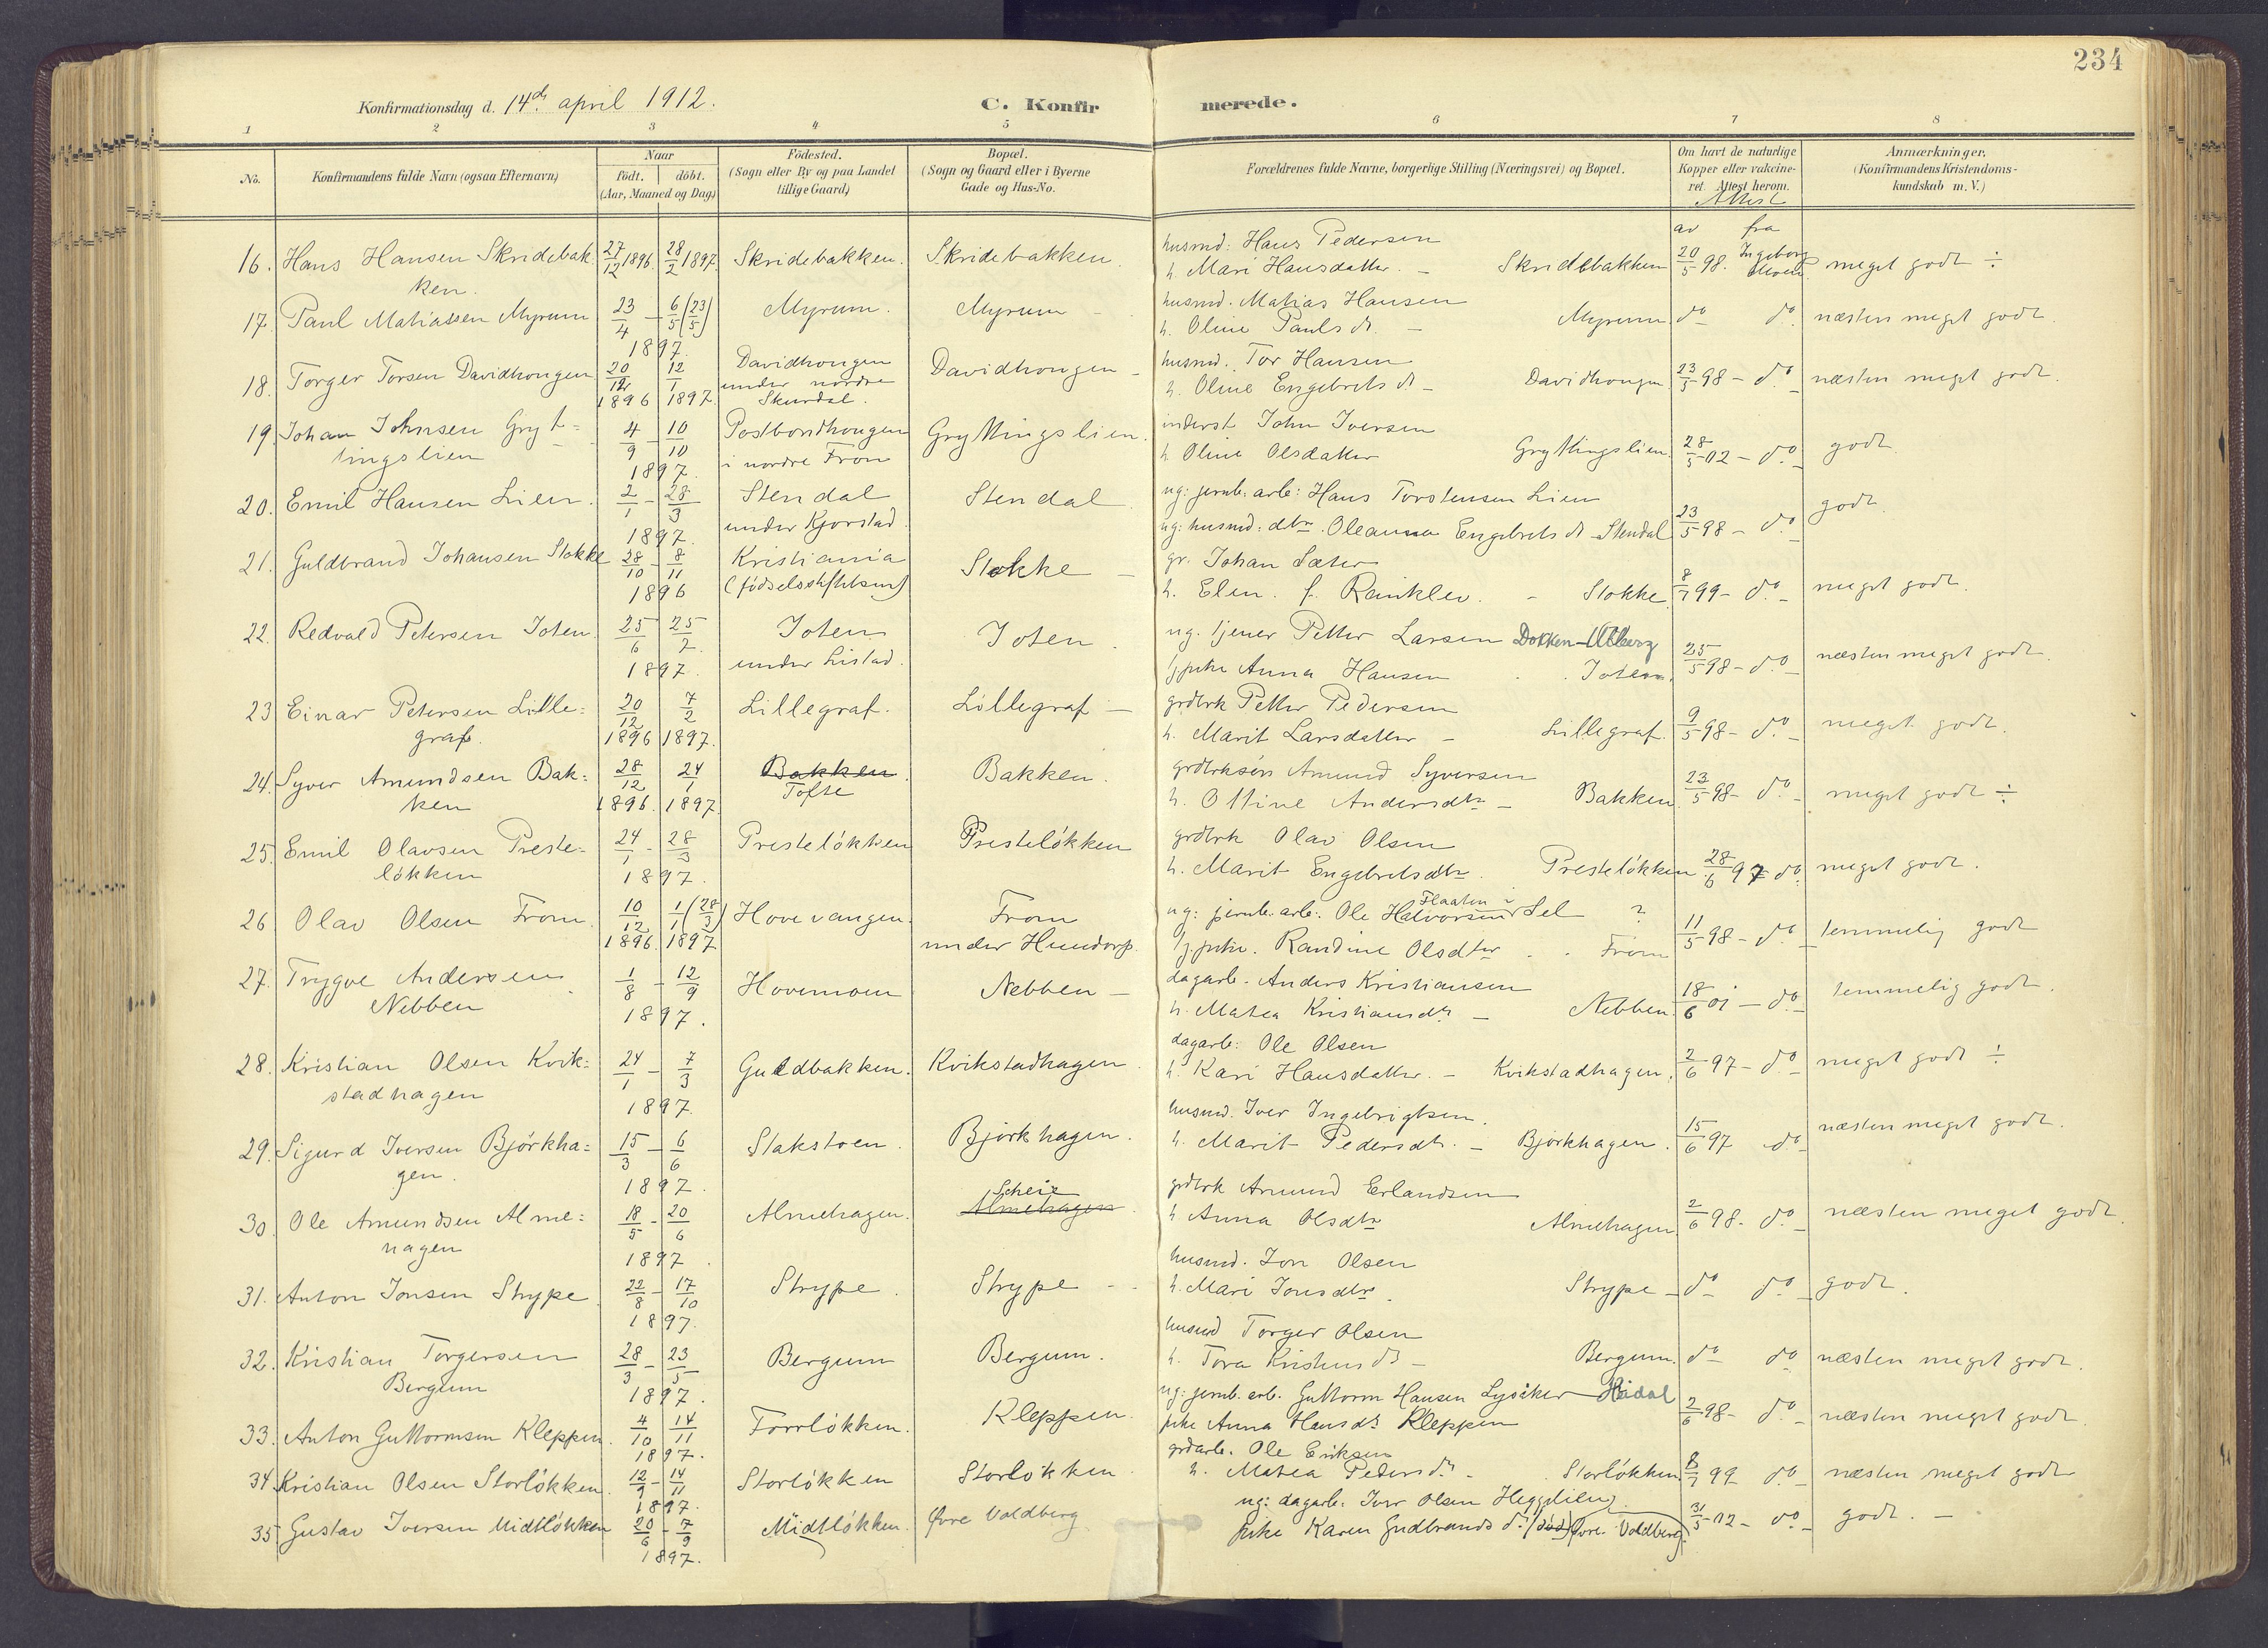 234
Konfirmationsdag d. 14de april 1912.
C. Konfir
merede.
1 2 3 4 5 6 7 8
No.
Konfirmandens fulde Navn (ogsaa Efternavn)
Naar
födt. döbt.
(Aar, Maaned og Dag)
Födested.
(Sogn eller By og paa Landet
tillige Gaard)
Bopæl.
(Sogn og Gaard eller i Byerne
Gade og Hus-No.
Forældrenes fulde Navne, borgerlige Stilling (Næringsvei) og Bopæl.
Om havt de naturlige
Kopper eller vakcine-
ret. Attest herom.
Anmærkninger.
(Konfirmandens Kristendoms-
kundskab m. V.)
Attest
av fra
16. Hans Hansen Skridebak
ken.
27/12 1896. 28/2 1897.
Skridebakken.
Skridebakken.
husmd: Hans Pedersen
h. Mari Hansdatter. – Skridebakken
20/5 98. Ingeborg Moen
meget godt ÷
17. Paul Matiassen Myrum
23/4 – 6/5 (23/5)
1897.
Myrum.
Myrum –
husmd. Matias Hansen
h. Oline Pauls dr. – Myrum
do do.
næsten meget godt.
18. Torger Torsen Davidhougen
20/12 12/1
1896 1897.
Davidhougen
under nordre
Skurdal.
Davidhougen –
husmd. Tor Hansen
h. Oline Engebrets dr – Davidhougen
23/5 98 – do
næsten meget godt.
19. Johan Johnsen Gryt=
tingslien
4/9 – 10/10
1897.
Postbondhougen
i nordre Fron
Gryttingslien.
inderst John Iversen
h. Oline Olsdatter Gryttingslien.
28/5 02 – do
godt.
20. Emil Hansen Lien.
2/1 – 28/3
1897.
Stendal
under Kjorstad.
Stendal.
ug: jernb. arb: Hans Torstensen Lien
ug: husmd: dtr. Oleanna Engebrets dr – Stendal
23/5 98 – do
godt.
21. Guldbrand Johansen Stokke
28/10 – 8/11
1896
Kristiania
(födselsstiftelsen)
Stokke –
gr. Johan Sæter
h. Elen. f. Rinklev. – Stokke.
8/7 99 – do
meget godt.
22. Redvald Petersen Joten.
25/6 25/7
1897.
Joten
under Listad.
Joten.
ug. tjener Petter Larsen Dokken –
tj.pike Anna Hansen Joten.
25/5 98 – do
næsten meget godt.
23 Einar Petersen Lille=
graf.
20/12 7/2
1896 1897.
Lillegraf.
Lillegraf –
grdbrk Petter Pedersen
h. Marit Larsdatter – Lillegraf.
9/5 98 – do
meget godt.
24. Syver Amundsen Bak=
ken
28/12 24/1
1896. 1897.
Bakken.
Tofte
Bakken.
grdbrksøn Amund Syversen
h. Ottine Andersdtr – Bakken
23/5 98 – do –
meget godt ÷
25. Emil Olavsen Preste=
lökken
24/1 – 28/3
1897.
Prestelökken
Prestelökken
grdbrk Olav Olsen
h. Marit Engebretsdtr. Prestelökken
28/6 97 do.
meget godt.
26 Olav Olsen From.
10/12 1/1 (28/3)
1896. 1897
Hovevangen.
From
under Hundorp.
ug: jernb. arb. Ole Halvorsen Flaaten i Sel ?
tj.pike. Randine Olsdtr From
11/5 98 – do
temmelig godt
27. Trygve Andersen
Nebben
1/8 – 12/9
1897.
Hovemoen
Nebben –
dagarb. Anders Kristiansen
h. Matea Kristiansdr – Nebben
18/6 01 – do
temmelig godt.
28. Kristian Olsen Kvik=
stadhagen
24/1 – 7/3
1897.
Guldbakken.
Kvikstadhagen.
dagarb: Ole Olsen
h. Kari Hansdatter. – Kvikstadhagen.
2/6 97 – do
meget godt ÷
29. Sigurd Iversen Björkha=
gen.
15/3 – 6/6
1897.
Stakstoen.
Björkhagen.
husmd. Iver Ingebrigtsen.
h. Marit Pedersdtr. – Björkhagen.
15/6 97 do
næsten meget godt.
30. Ole Amundsen Alme=
hagen
18/5 – 20/6
1897.
Almehagen.
Scheie
Almehagen.
grdbrk Amund Erlandsen
h Anna Olsdtr Almehagen
2/6 98. do
næsten meget godt.
31. Anton Jonsen Strype.
22/8 – 17/10
1897.
Strype.
Strype –
husmd. Jon Olsen
h. Mari Jonsdtr. Strype –
do do
godt.
32. Kristian Torgersen
Bergum
28/3 – 23/5
1897.
Bergum
Bergum.
husmd Torger Olsen
h. Tora Kristens dr – Bergum.
do do
næsten meget godt.
33. Anton Guttormsen Kleppen.
4/10 14/11
1897.
Torrlökken.
Kleppen.
ug: jernb. arb. Guttorm Hansen Lysåker – Hédal
pike Anna Hansdr Kleppen
2/6 98 – do
næsten meget godt.
34. Kristian Olsen Storlökken.
12/9 – 14/11
1897.
Storlökken
Storlökken.
grdarb. Ole Eriksen
h. Matea Peders dr. – Storlökken.
8/7 99 do
næsten meget godt
35. Gustav Iversen Midtlökken
20/6 – 7/9
1897.
Midtlökken.
Øvre Voldberg
ug: dagarb: Iver Olsen Heggelien.
pike Karen Gudbrands dr. (död) Øvre Voldberg.
31/5 02 – do
godt. –